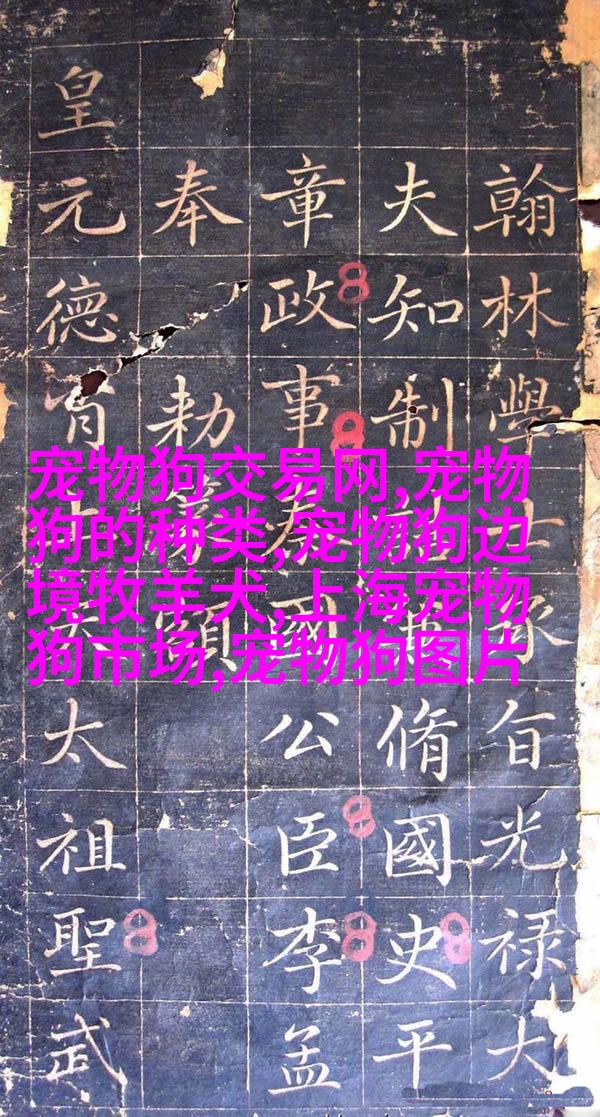 宠物狗交易网,宠物
狗的种类,宠物狗边
境牧羊犬,上海宠物
狗市场,宠物狗图片
翰林學士承旨光禄大
夫知制脩國史平
章政事國公臣李孟
奉勅篆額
皇元德肖天太祖聖武